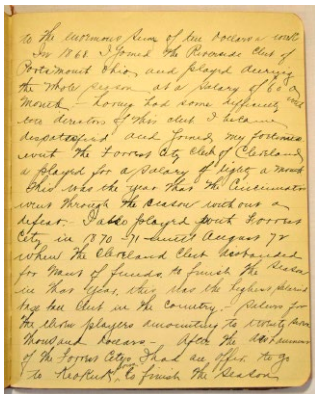 to the enormous sum of five dollars a week
In 1868. I joined the Riverside Club of
Portsmouth Ohio, and played during
the whole season at a salary of 60 a
month – having had some difficulty with
directors of this club I became
dissatisfied and joined my fortunes
with the Forrest City Club of Cleveland
& played for a salary of eighty a month
This was the year that the Cincinnatis
went through the season without a
defeat. I also played with Forrest
City in 1870 - 71 until August 72
when the Cleveland Club disbanded
for want of funds, to finish the season
in that year, this was the highest salaried
base ball Club in the country – salaries for
the players amounting to twenty seven
thousand dollars – After the
of the Forrest Citys I had an offer to go
to Keokuk Iowa, to finish the season